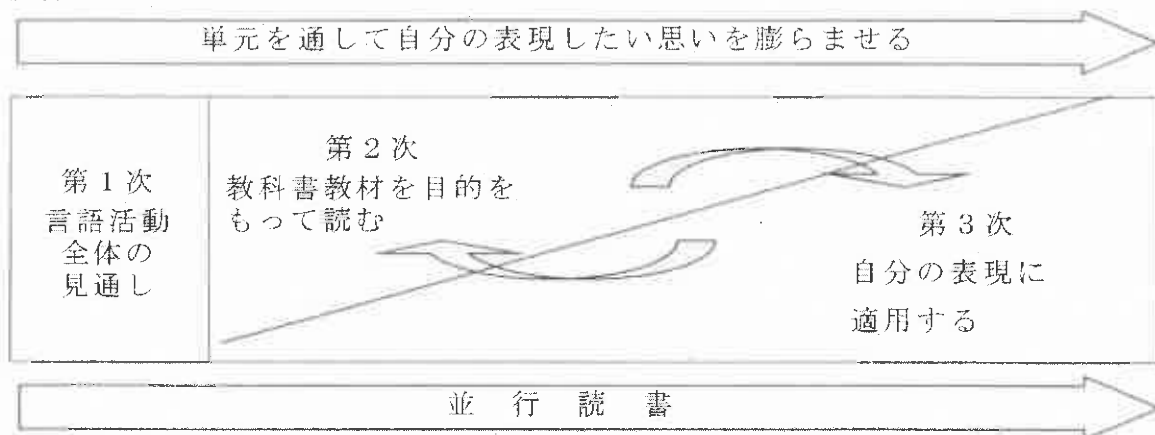 単元を通して自分の表現したい思いを膨らませる
第1次
言語活動
全体の
見通し
第2次
教科書教材を目的を
もって読む
第3次
自分の表現に
適用する
並行読書